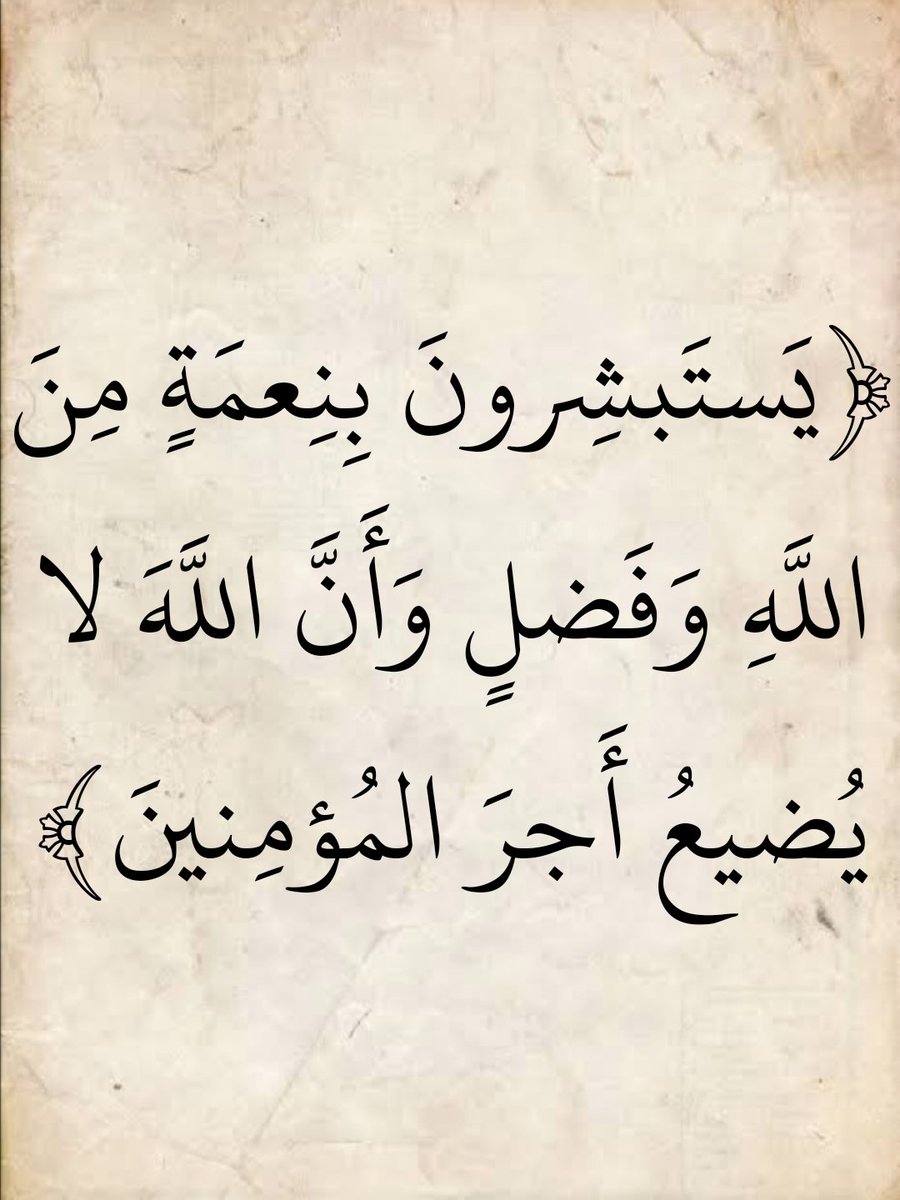 ﴿يَستَبشِرونَ بِنِعمَةٍ مِنَ
اللَّهِ وَفَضلٍ وَأَنَّ اللَّهَ لا
يُضيعُ أَجرَ المُؤمِنينَ﴾